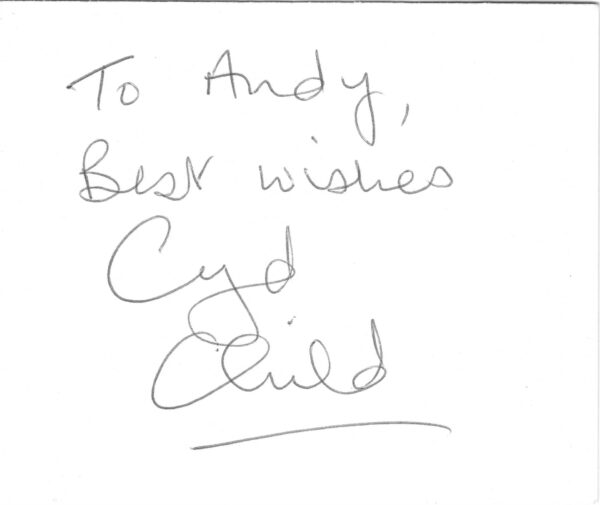 To Andy,
Best wishes
Cyd
Child